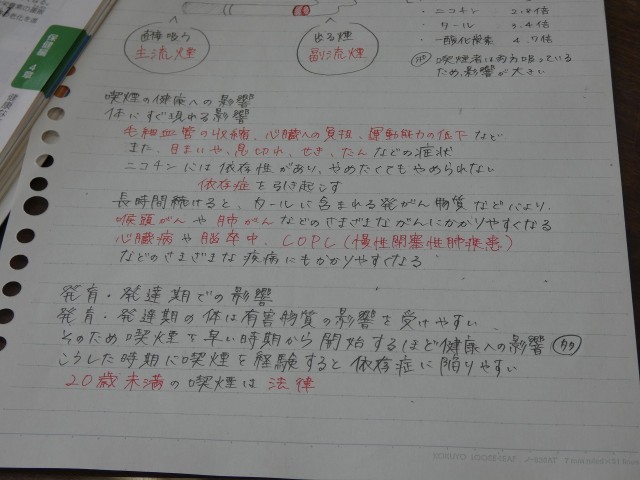 直接吸う
主流煙
出る煙
副流煙
・ニコチン 2.8倍
・タール 3.4倍
・一酸化炭素 4.7倍
喫煙者は両方吸っている
ため影響が大きい
保健編 4章
喫煙の健康への影響
体にすぐ現れる影響
毛細血管の収縮、心臓への負担、運動能力の低下など
また、目まいや、息切れ、せき、たんなどの症状
ニコチンには依存性があり、やめたくてもやめられない
依存症を引き起こす
長時間続けると、タールに含まれる発がん物質などにより、
喉頭がんや肺がんなどのさまざまながんにかかりやすくなる
心臓病や脳卒中、COPD(慢性閉塞性肺疾患)
などのさまざまな疾病にもかかりやすくなる
発育・発達期での影響
発育・発達期の体は有害物質の影響を受けやすい、
そのため喫煙を早い時期から開始するほど健康への影響 大
こうした時期に喫煙を経験すると依存症に陥りやすい
20歳未満の喫煙は法律